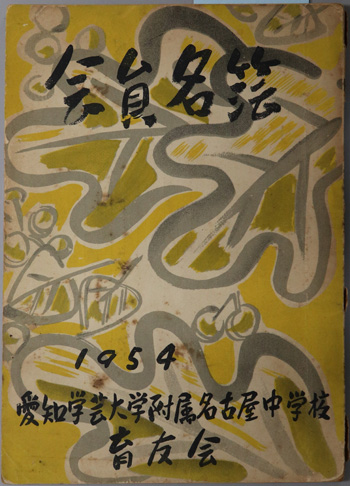 会員名簿
1954
愛知学芸大学附属名古屋中学校
育友会